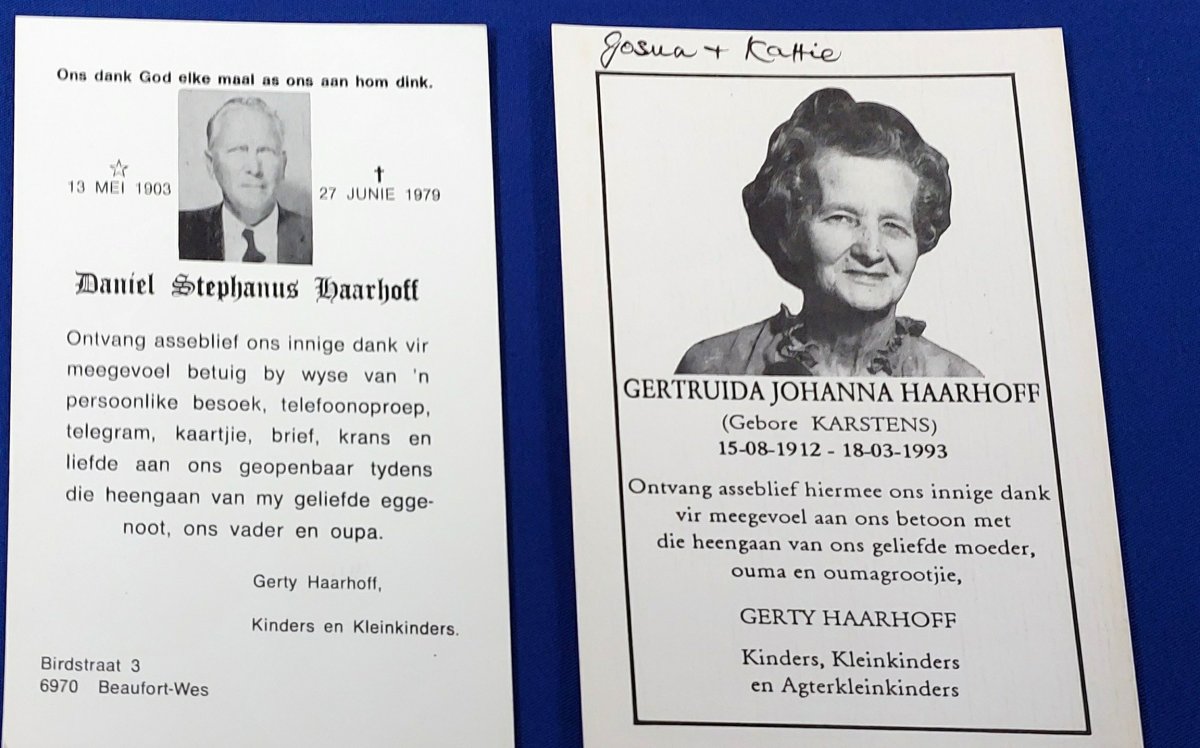 Ons dank God elke maal as ons aan hom dink.
13 MEI 1903
27 JUNIE 1979
Daniel Stephanus Haarhoff
Ontvang asseblief ons innige dank vir
meegevoel betuig by wyse van 'n
persoonlike besoek, telefoonoproep,
telegram, kaartjie, brief, krans en
liefde aan ons geopenbaar tydens
die heengaan van my geliefde egge-
noot, ons vader en oupa.
Gerty Haarhoff,
Kinders en Kleinkinders.
Birdstraat 3
6970 Beaufort-Wes
Josua + Kattie
GERTRUIDA JOHANNA HAARHOFF
(Gebore KARSTENS)
15-08-1912 - 18-03-1993
Ontvang asseblief hiermee ons innige dank
vir meegevoel aan ons betoon met
die heengaan van ons geliefde moeder,
ouma en oumagrootjie,
GERTY HAARHOFF
Kinders, Kleinkinders
en Agterkleinkinders